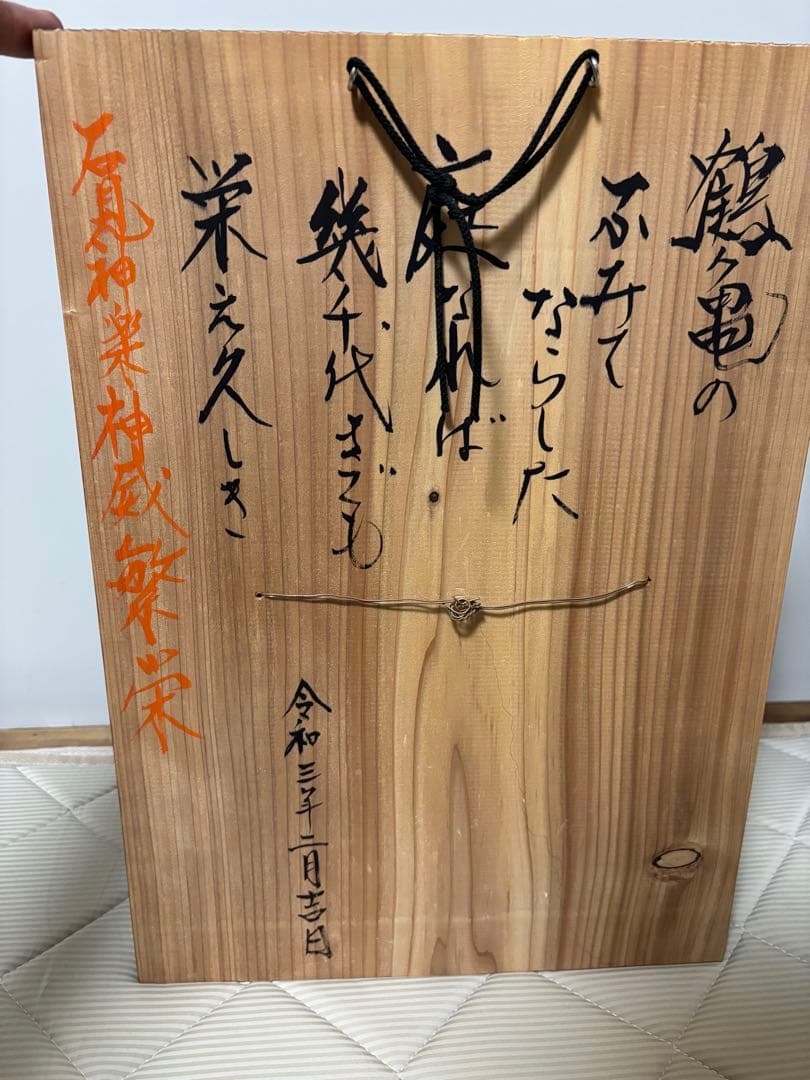 鶴々亀の
ふみて
ならした
庭なれば
幾千代までも
栄え久しき
石見神楽神威繁栄
令和三年二月吉日